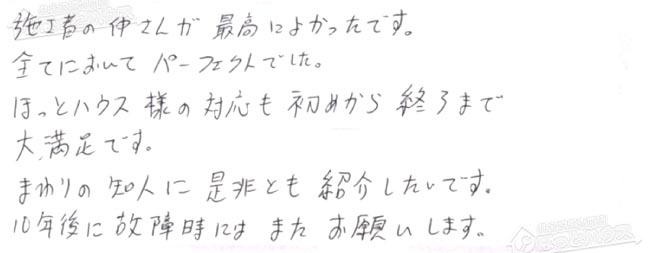 施工者の仲さんが 最高によかったです。
全てにおいて パーフェクトでした。
ほっとハウス様の対応も初めから終了まで
大満足です。
まわりの知人に是非とも紹介したいです。
10年後に故障時にはまたお願いします。